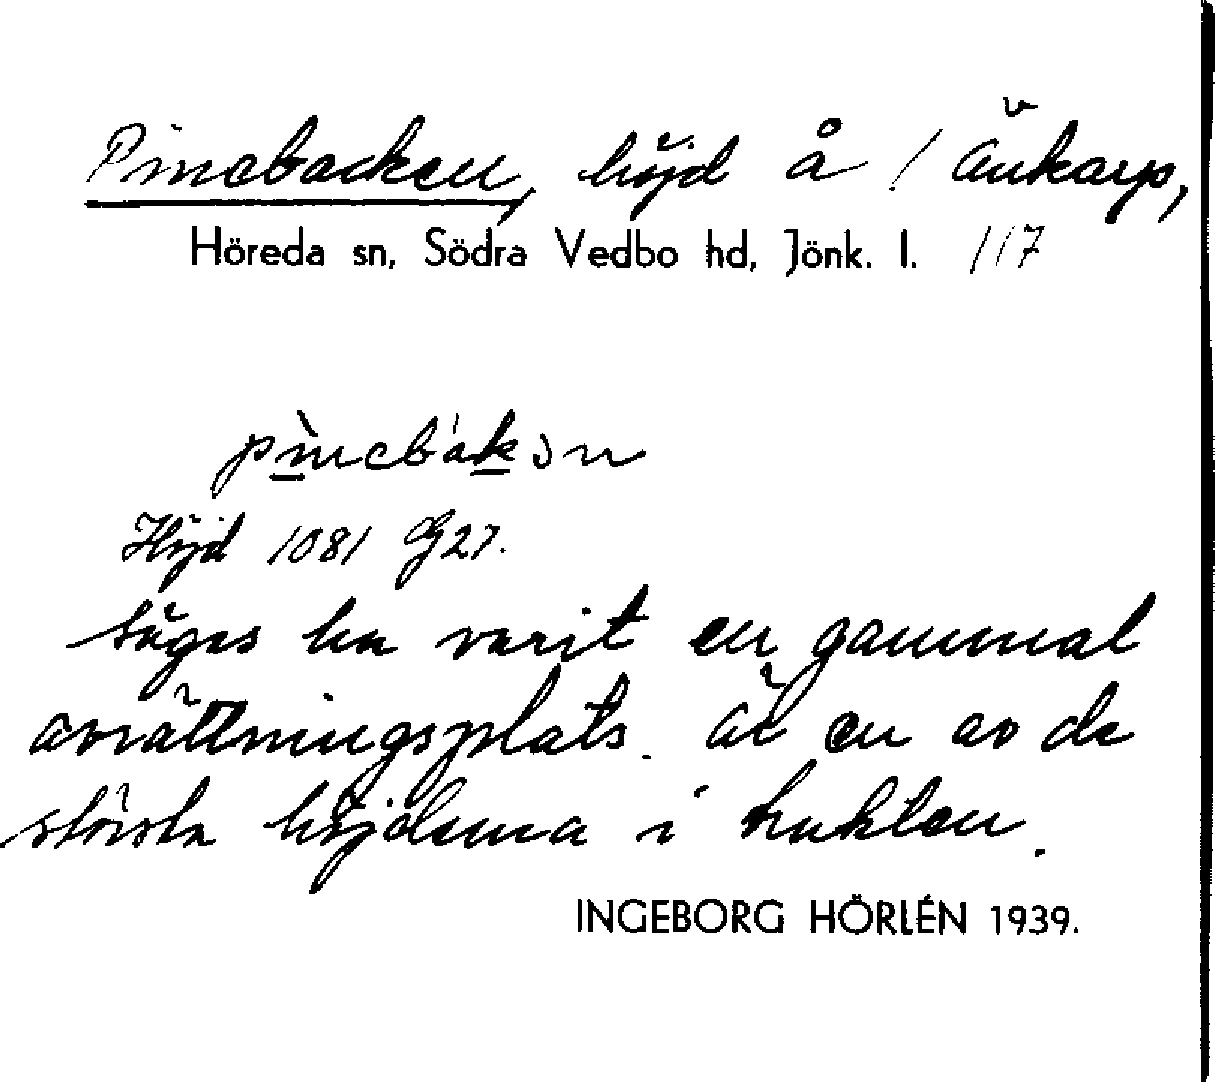 Pinebacken, höjd å / Änkarp,
Höreda sn, Södra Vedbo hd, Jönk. l. 117
pìnebákən
Höjd 1081 G27.
säges ha varit en gammal
avrättningsplats. är en av de
största höjderna i trakten.
INGEBORG HÖRLÉN 1939.